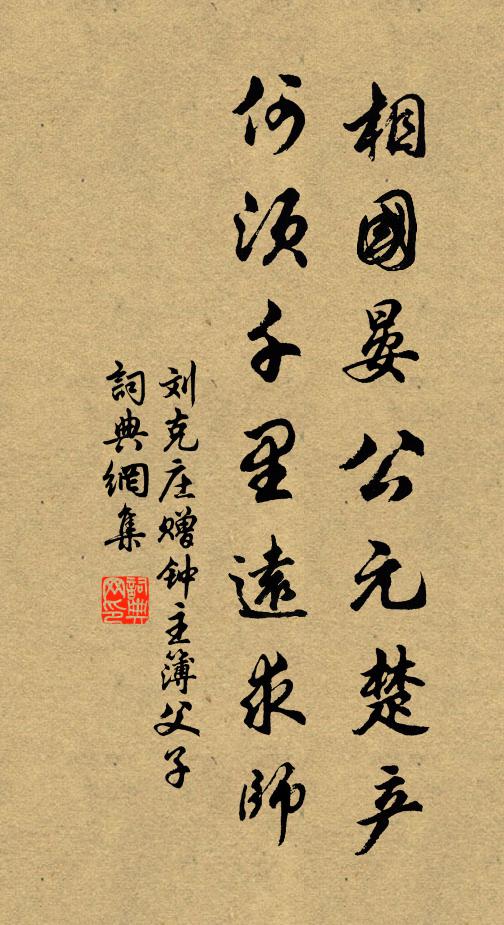 相國晏公元楚产
何須千里遠求師
刘克庄赠钟主簿父子
詞典網集
詞典网印